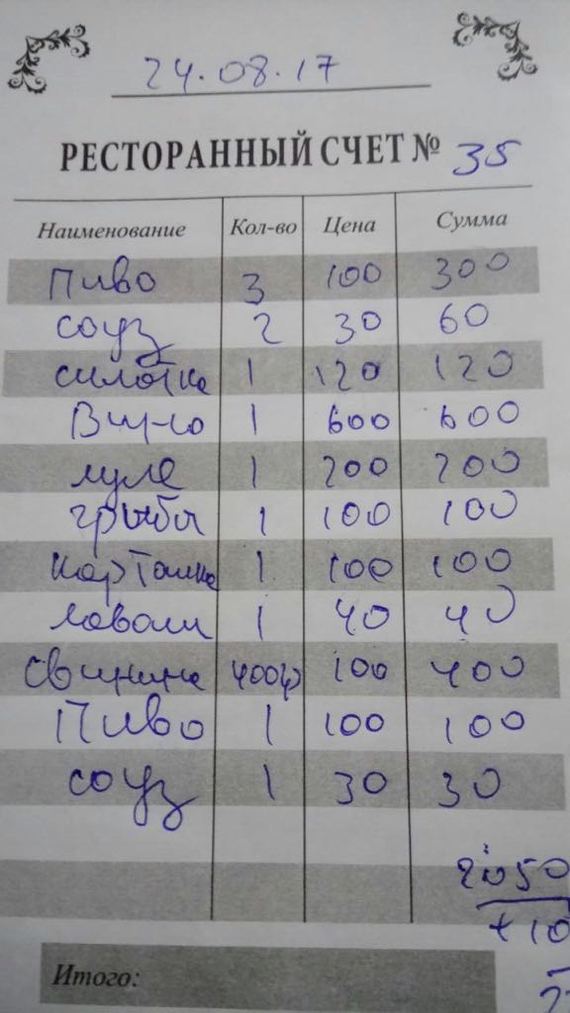 24.08.17
РЕСТОРАННЫЙ СЧЕТ № 35
Наименование Кол-во Цена Сумма
Пиво 3 100 300
соуз 2 30 60
силотка 1 120 120
Вино 1 600 600
луле 1 200 200
грибы 1 100 100
картошка 1 100 100
лаваши 1 40 40
свинина 400гр 100 400
Пиво 1 100 100
соуз 1 30 30
2050
+10
Итого: